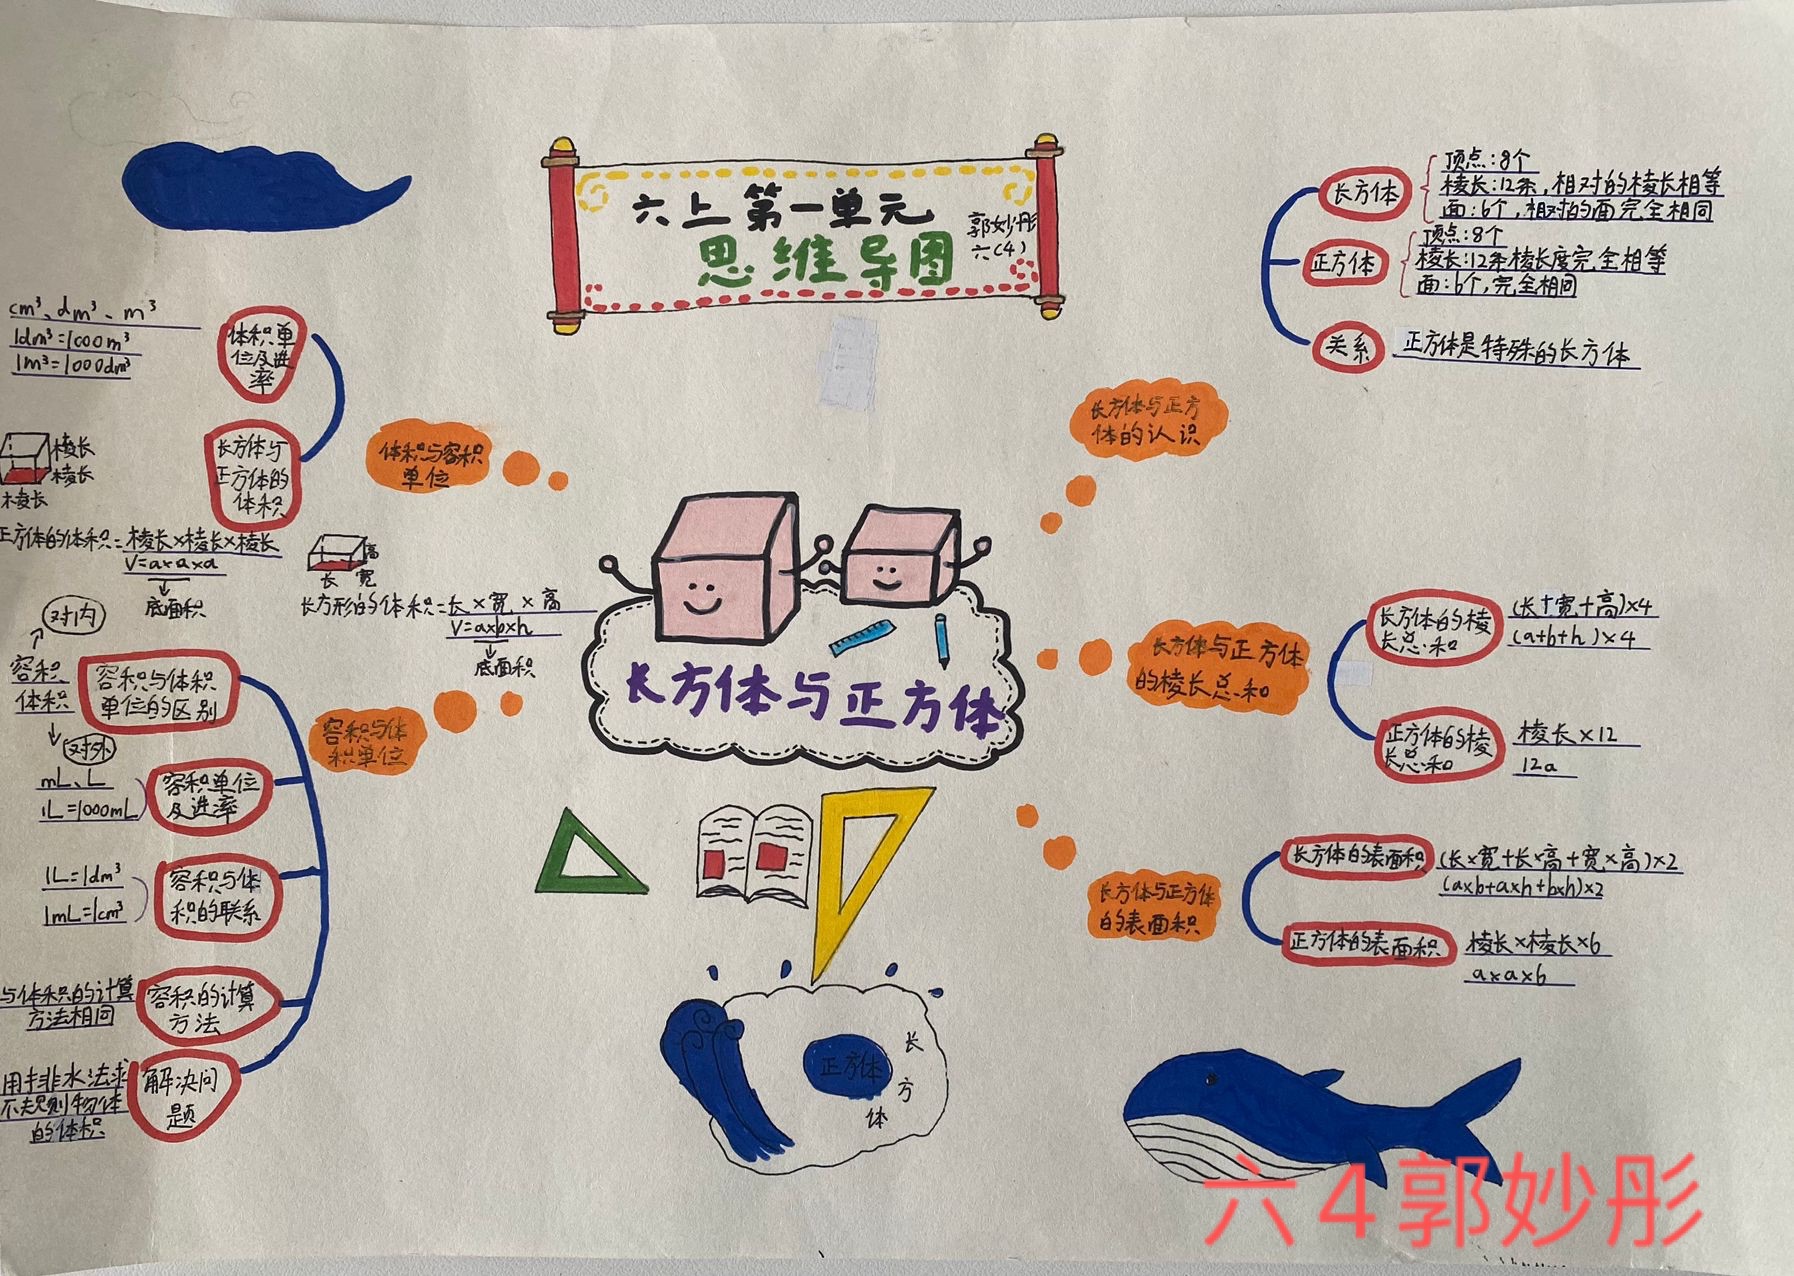 六上第一单元
思维导图
郭妙彤
六(4)
长方体与正方体
长方体与正方
体的认识
长方体
顶点:8个
棱长:12条,相对的棱长相等
面:6个,相对的面完全相同
正方体
顶点:8个
棱长:12条棱长度完全相等
面:6个,完全相同
关系
正方体是特殊的长方体
长方体与正方体
的棱长总和
长方体的棱
长总和
(长+宽+高)×4
(a+b+h)×4
正方体的棱
长总和
棱长×12
12a
长方体与正方体
的表面积
长方体的表面积
(长×宽+长×高+宽×高)×2
(a×b+a×h+b×h)×2
正方体的表面积
棱长×棱长×6
a×a×6
体积与容积
单位
体积单
位及进
率
cm³、dm³、m³
1dm³=1000m³
1m³=1000dm³
长方体与
正方体的
体积
棱长
棱长
棱长
正方体的体积=棱长×棱长×棱长
V=a×a×a
底面积
高
长 宽
长方形的体积=长×宽×高
V=a×b×h
底面积
容积与体
积单位
容积与体积
单位的区别
对内
容积
体积
对外
容积单位
及进率
mL、L
1L=1000mL
容积与体
积的联系
1L=1dm³
1mL=1cm³
容积的计算
方法
与体积的计算
方法相同
解决问
题
用排水法求
不规则物体
的体积
正方体
长
方
体
六4郭妙彤